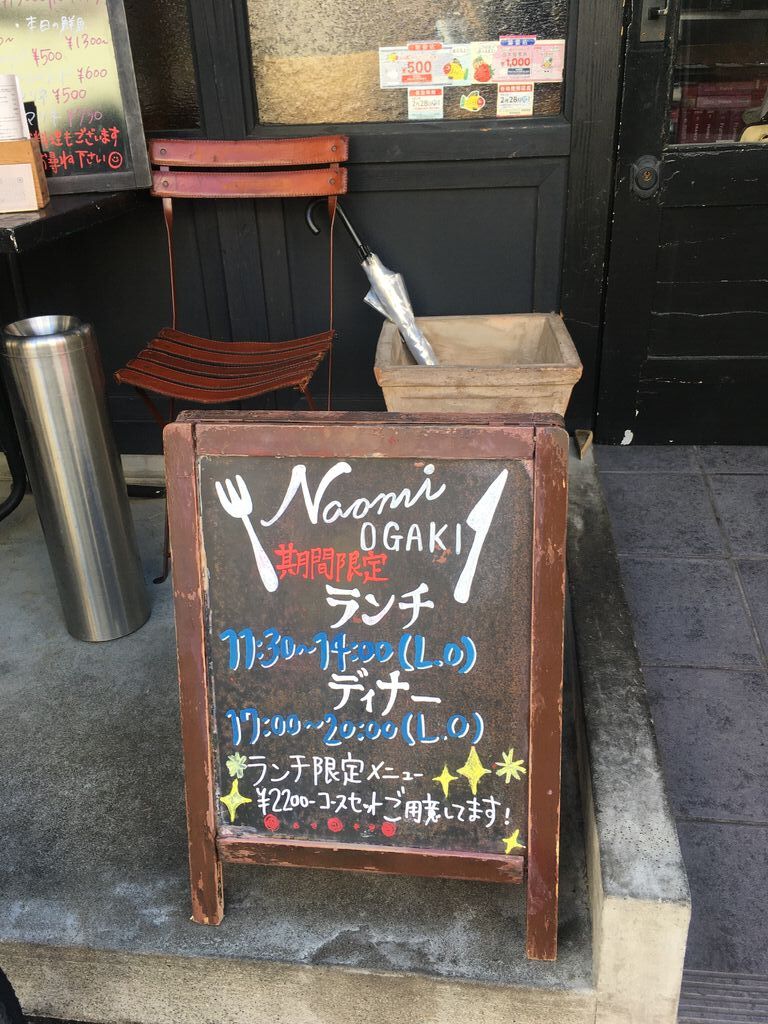 本日の鮮魚
¥1300~
¥500
¥600
¥500
¥750
料理もございます
お尋ね下さい
¥500
¥1,000
2月28日
2月28日
Naomi
OGAKI
期間限定
ランチ
11:30~14:00(L.O)
ディナー
17:00~20:00(L.O)
ランチ限定メニュー
¥2200-コースセットご用意してます!